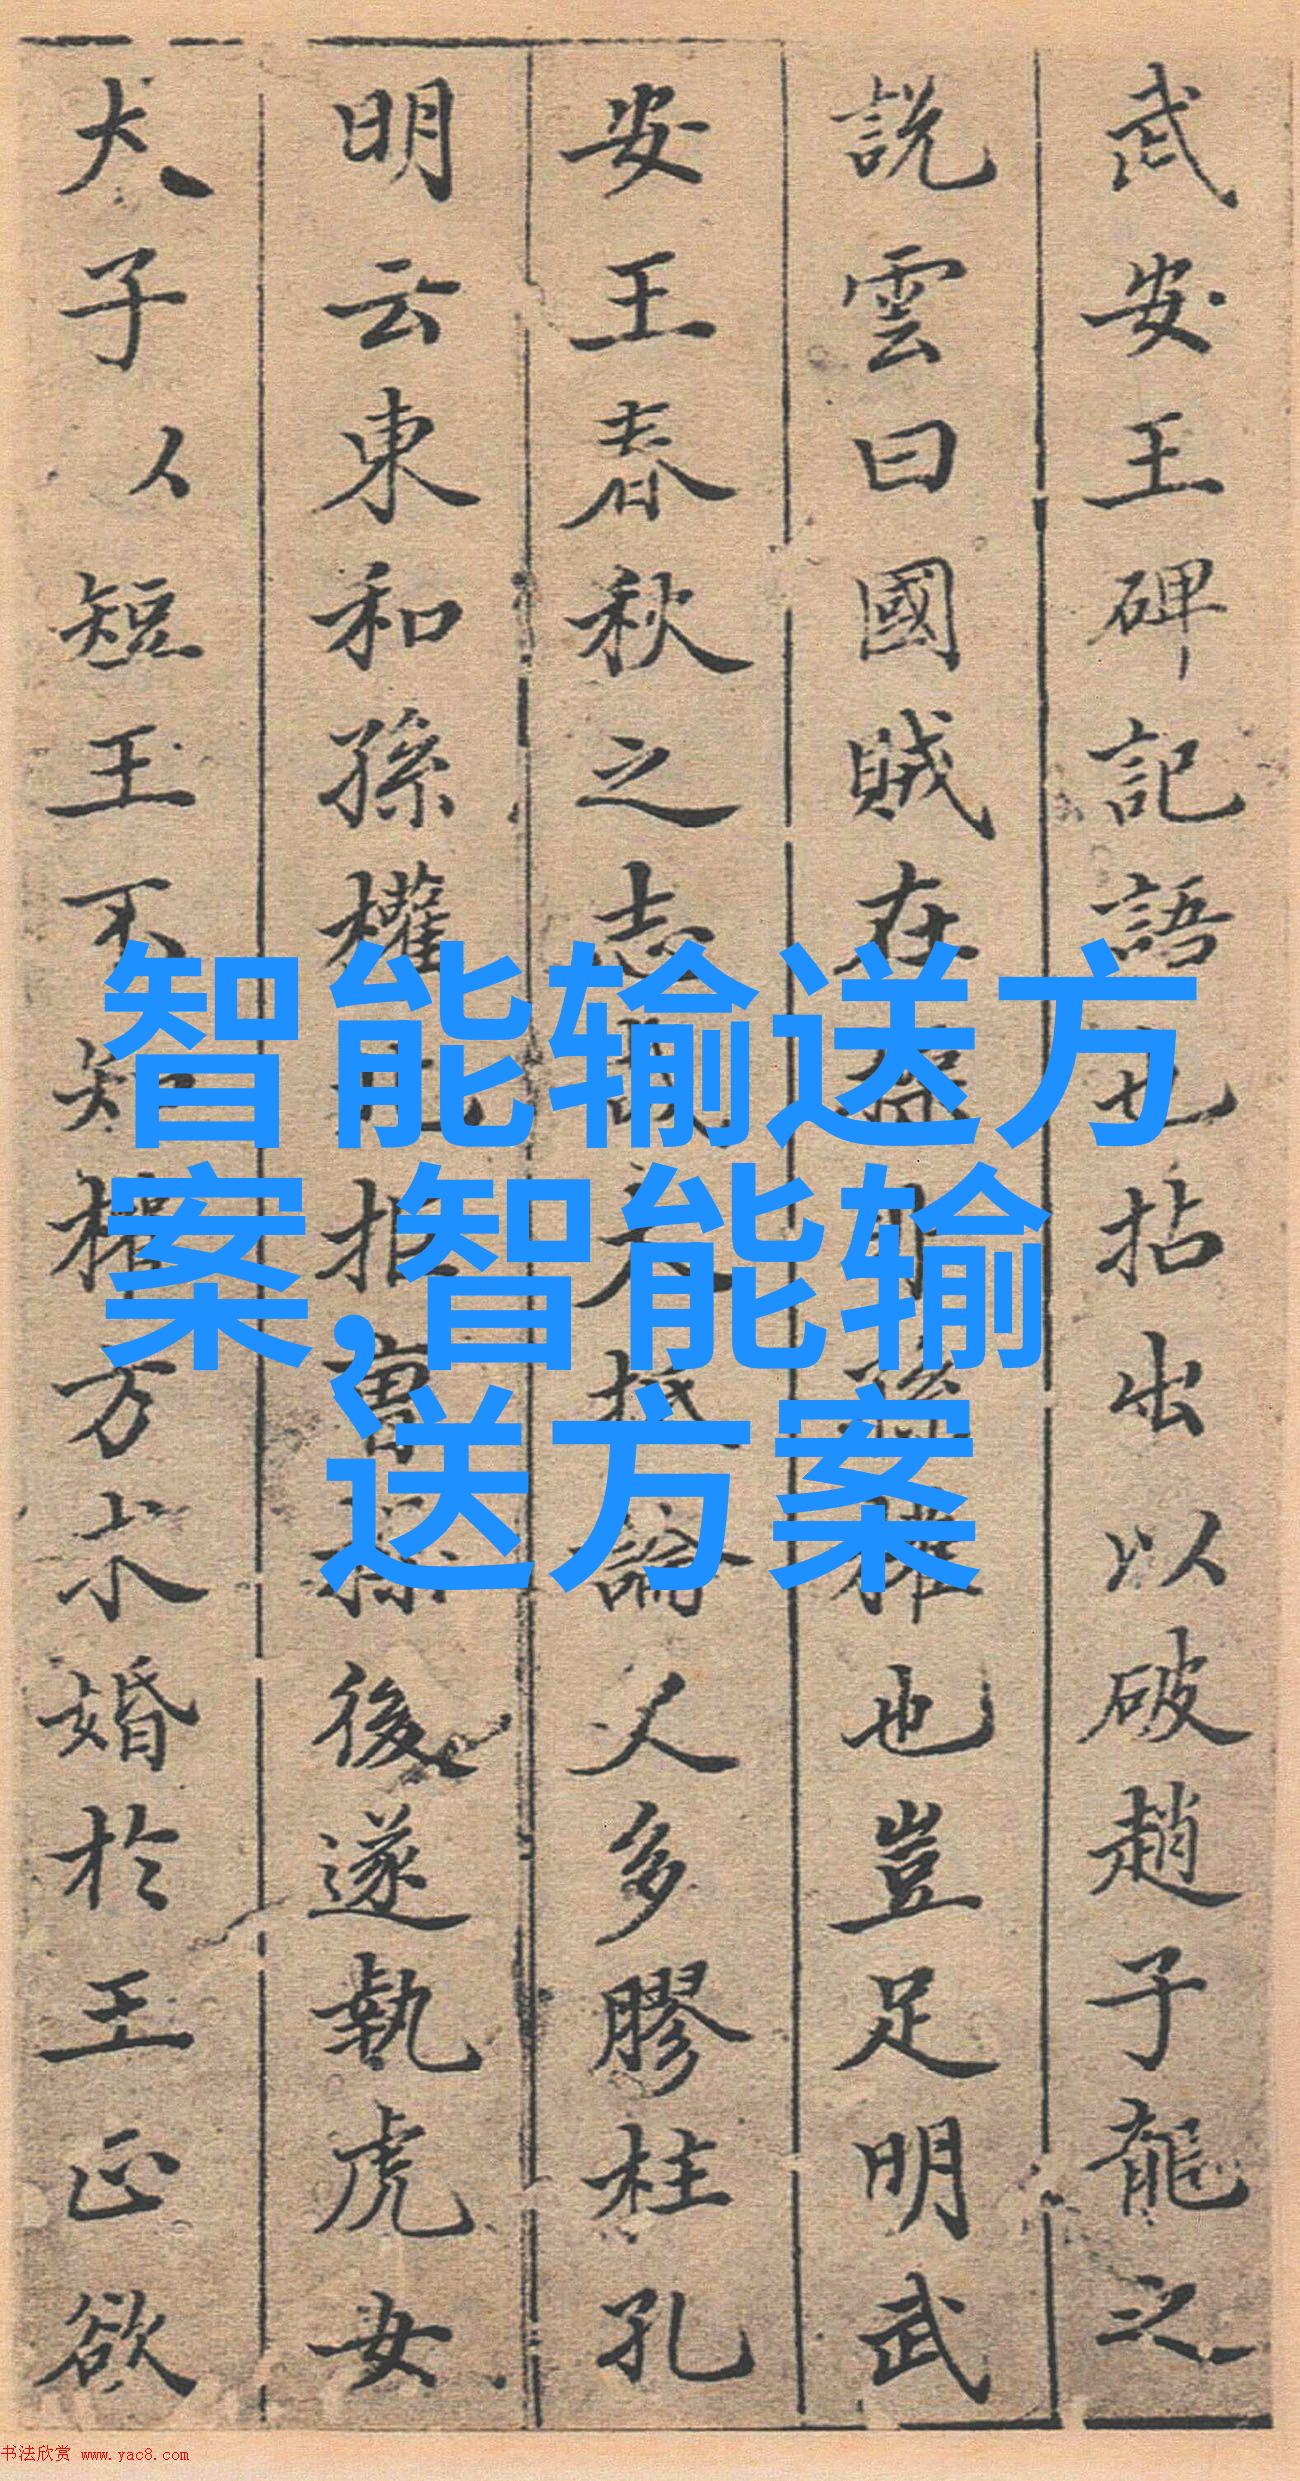 武安王碑記語也拈出以破趙子龍之
說雲曰國賊在操非孫權也豈足明武
安王春秋之志哉大抵論人多膠柱孔
明云東和孫權北拒曹孫後遂執虎女
犬子以短王不知權方求婚於王正欲
智能输送方
案,智能输
送方案
书法欣赏 www.yac8.com